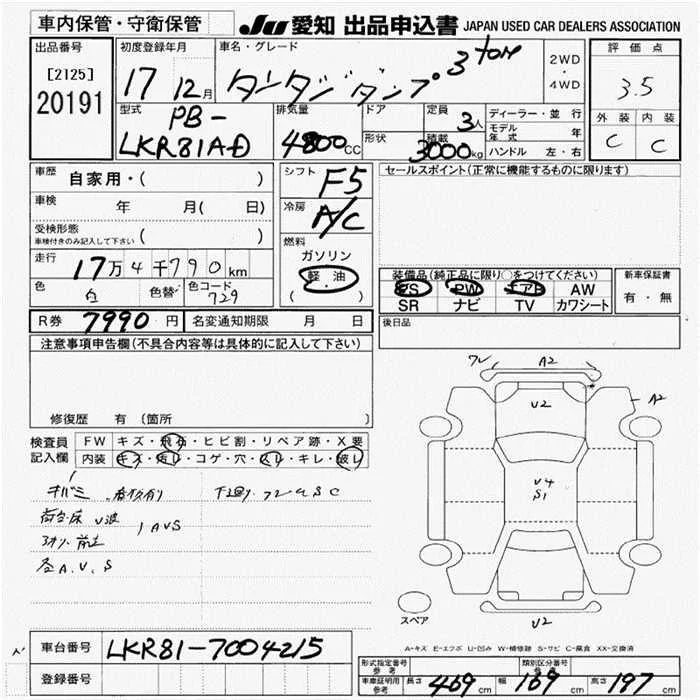 車内保管・守衛保管
JU 愛知 出品申込書 JAPAN USED CAR DEALERS ASSOCIATION
出品番号
[2125]
20191
初度登録年月
17 12月
車名・グレード
3ton
2WD
・
4WD
評価点
3.5
外装 内装
C C
型式
PB-
LKR81AD
排気量
4800cc
ドア
形状
定員
3人
積載
3000kg
ディーラー・並行
モデル年式 年
ハンドル 左・右
車歴
自家用・( )
車検
年 月( 日)
受検形態
車検付きのみ記入して下さい ( )
走行
17万4千790km
色 白 色替 色コード 729
シフト F5
冷房 A/C
燃料
ガソリン
軽油
( )
セールスポイント(正常に機能するものに限ります)
装備品(純正品に限り○をつけてください)
PS PW エアB AW
SR ナビ TV カワシート
新車保証書
有・無
R券 7990円 名変通知期限 月 日
後日品
注意事項申告欄(不具合内容等は具体的に記入して下さい)
修復歴 有(箇所 )
検査員
記入欄
FW キズ・飛石・ヒビ割・リペア跡・X要
内装 キズ・汚レ・コゲ・穴・スレ・キレ・破レ
キバミ
荷台床 U波
各A.V.S
A2
A2
U2
U4
S1
U2
スペア
A-キズ E-エクボ U-凹み W-補修跡 S-サビ C-腐食 XX-交換済
車台番号 LKR81-7004215
登録番号
形式指定番号
参考
類別区分番号
参考
車庫証明用
参考
長さ 469cm 幅 169cm 高さ 197cm